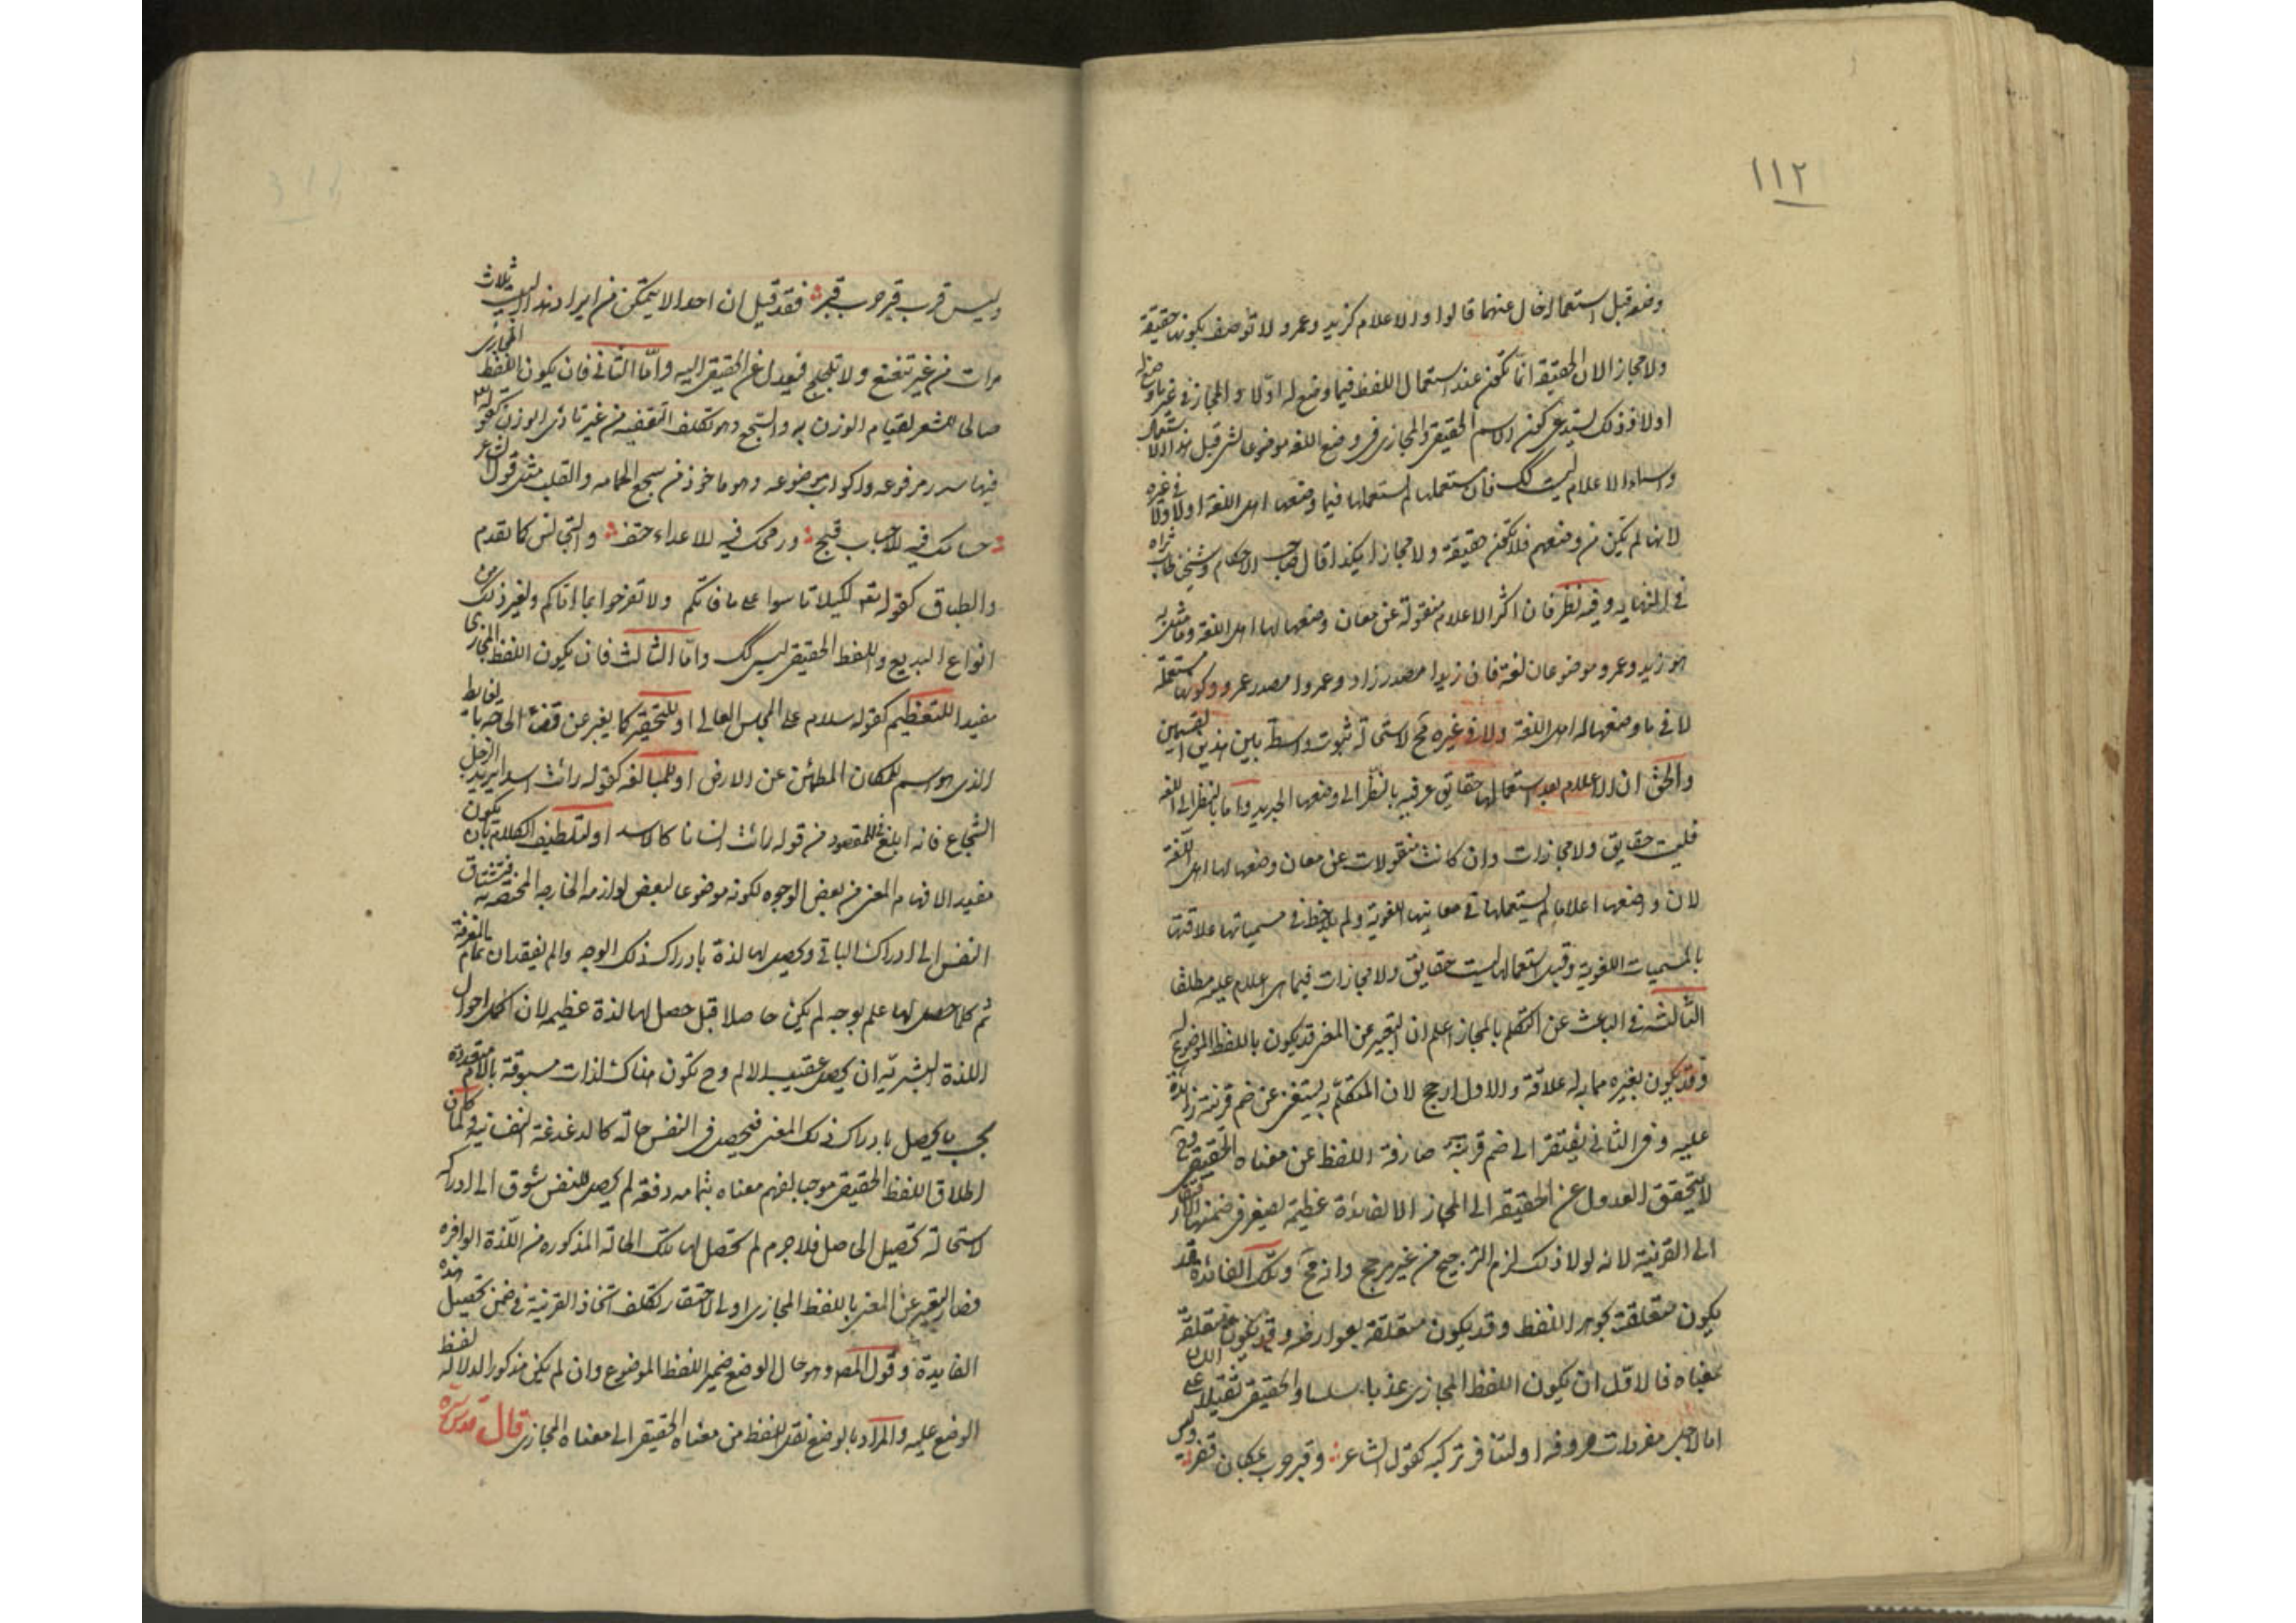 ١١٢
وضعه قبل استعماله خال عنهما قالوا والاعلام كزيد وعمرو لا توصف بكونها حقيقة
ولا مجازا لان الحقيقة انما تكون عند استعمال اللفظ فيما وضع له اولا والمجاز في غير ما وضع له
اولا وذلك يستدعي كون الاسم الحقيقي والمجازي في وضع اللغة موضوعا لشيء قبل هذا الاستعمال
واسماء الاعلام ليست كك فان مستعملها لم يستعملها فيما وضعها اهل اللغة اولا ولا في غيره
لانها لم تكن من وضعهم فلا تكون حقيقة ولا مجازا هكذا قال صاحب الاحكام وشيخنا طاب ثراه
في النهاية وفيه نظر فان اكثر الاعلام منقولة عن معان وضعها لها اهل اللغة وما مثل به
هو زيد وعمرو موضوعان لغة فان زيدا مصدر زاد وعمروا مصدر عمر وكونها مستعملة
لا في ما وضعها له اهل اللغة ولا في غيره مح لاستحالة ثبوت واسطة بين هذين القسمين
والحق ان الاعلام بعد استعمالها حقايق عرفية بالنظر الى وضعها الجديد واما بالنظر الى اللغة
فليست حقايق ولا مجازات وان كانت منقولات عن معان وضعها لها اهل اللغة
لان واضعها اعلاما لم يستعملها في معانيها اللغوية ولم يلاحظ في مسمياتها علاقتها
بالمسميات اللغوية وقبل استعمالها ليست حقايق ولا مجازات فيما هي اعلام عليه مطلقا
الثالث في الباعث عن التكلم بالمجاز اعلم ان التعبير عن المعنى قد يكون باللفظ الموضوع له
وقد يكون بغيره مما له علاقة والاول ارجح لان المتكلم به يستغني عن ضم قرينة زائدة
عليه وفي الثاني يفتقر الى ضم قرينة صارفة اللفظ عن معناه الحقيقي وح
لا يتحقق العدول عن الحقيقة الى المجاز الا لفائدة عظيمة يصغر في ضمنها الافتقار
الى القرينة لانه لولا ذلك لزم الترجيح من غير مرجح وانه مح وتلك الفائدة قد
يكون متعلقة بجوهر اللفظ وقد يكون متعلقة بعوارضه وقد يكون متعلقة
بمعناه فالاول ان يكون اللفظ المجازي عذبا سلسا والحقيقي ثقيلا على اللسان
اما لاجل مفردات حروفه او لتنافر تركيبه كقول الشاعر وقبر حرب بمكان قفر
وليس قرب قبر حرب قبر فقد قيل ان احدا لا يتمكن من ايراد هذا البيت ثلاث
مرات من غير تتعتع ولا تلجلج فيعدل عن الحقيقي اليه واما الثاني فان يكون اللفظ المجازي
صالحا للشعر لقيام الوزن به والسجع وهو تكلف التقفيه من غير تادي الوزن كقوله تع
فيها سرر مرفوعه واكواب موضوعه وهو ماخوذ من سجع الحمامه والقلب مثل قول الشاعر
حسامك فيه للاحباب فتح ورمحك فيه للاعداء حتف والتجانس كما تقدم
والطباق كقوله تع لكيلا تاسوا على ما فاتكم ولا تفرحوا بما اتاكم ولغير ذلك من
انواع البديع واللفظ الحقيقي ليس كك واما الثالث فان يكون اللفظ المجازي
مفيدا للتعظيم كقوله سلام على المجلس العالي او للتحقير كما يعبر عن قضاء الحاجه بالغايط
الذي هو اسم للمكان المطمئن من الارض او للمبالغه كقوله رايت اسدا يريد الرجل
الشجاع فانه ابلغ في المقصود من قوله رايت انسانا كالاسد او لتلطيف الكلام بان يكون
مفيدا لافهام المعنى من بعض الوجوه لكونه موضوعا لبعض لوازمه الخارجه المختصه به فتشتاق
النفس الى ادراك الباقي ويحصل لها لذة بادراك ذلك الوجه والم بفقدان تمام المعرفة
ثم كلما حصل لها علم بوجه لم يكن حاصلا قبل حصل لها لذة عظيمه لان اكمل احوال
اللذة البشرية ان يحصل عقيب الالم وح تكون هناك لذات مسبوقة بالام متعددة
بحسب ما يحصل بادراك ذلك المعنى فيحصل في النفس حالة كالدغدغة النفسانية ولما كان
اطلاق اللفظ الحقيقي موجبا لفهم معناه بتمامه دفعه لم يحصل للنفس شوق الى ادراكه
لاستحالة تحصيل الحاصل فلا جرم لم تحصل لها تلك الحالة المذكوره من اللذة الوافره
فصار التعبير عن المعنى باللفظ المجازي اولى لاحتقار تكلف اتخاذ القرينة في ضمن تحصيل هذه
الفايدة وقول المص وهو حال الوضع ضمير اللفظ الموضوع وان لم يكن مذكورا لدلالة لفظ
الوضع عليه والمراد بالوضع نقل اللفظ من معناه الحقيقي الى معناه المجازي قال قدس سره